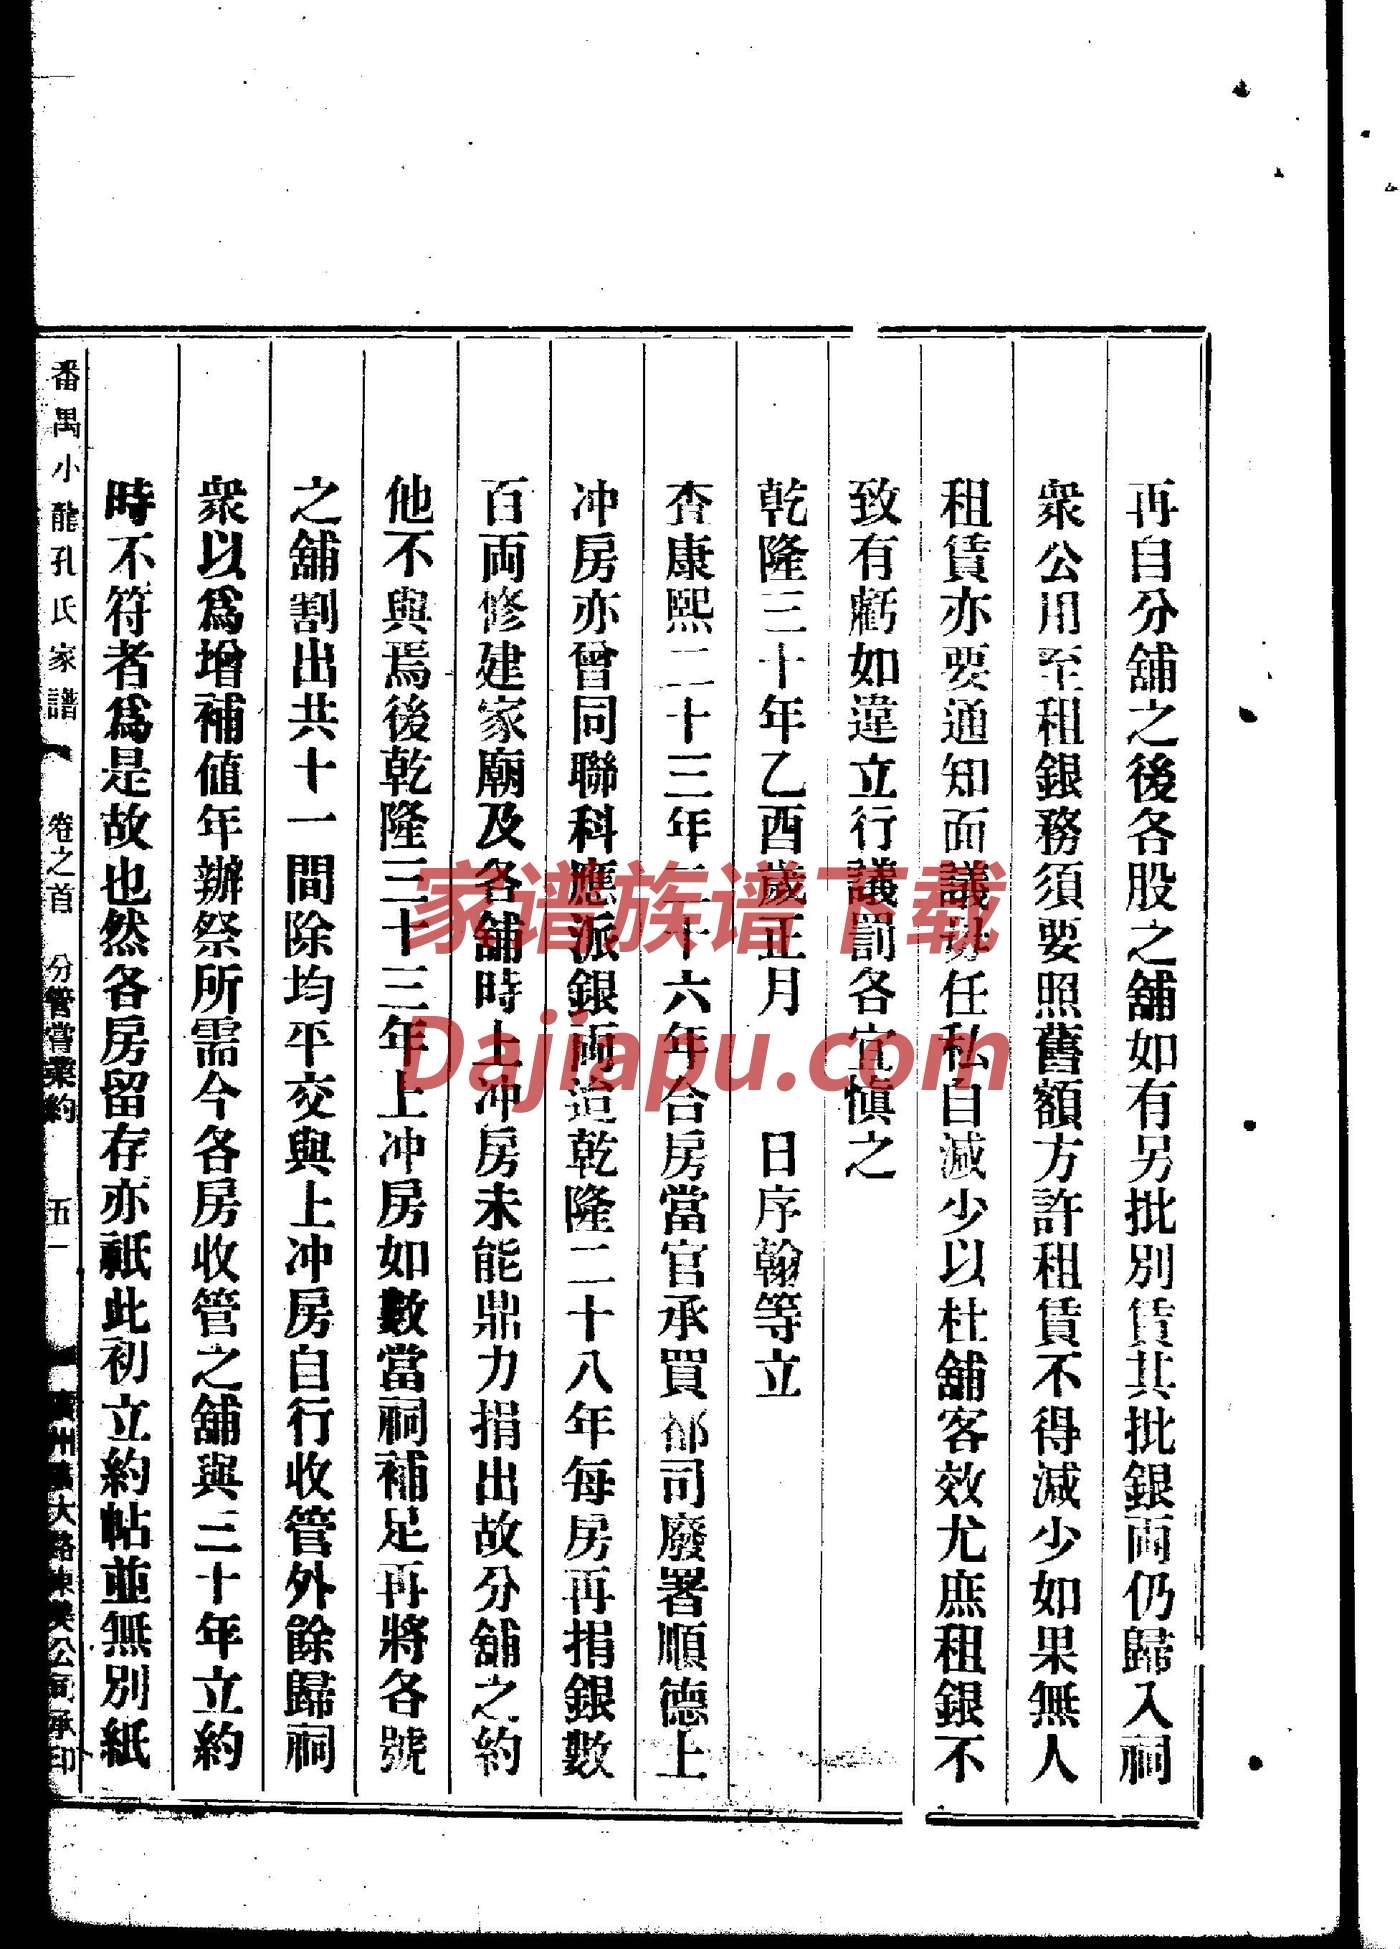 再自分舖之後各股之舖如有另批別賃其批銀両仍歸入祠
衆公用至租銀務須要照舊額方許租賃不得減少如果無人
租賃亦要通知面議毋任私自減少以杜舖客效尤庶租銀不
致有虧如違立行議罰各宜愼之
乾隆三十年乙酉歲正月　日序翰等立
查康熙二十三年二十六年合房當官承買都司廢署順德上
冲房亦曾同聯科應派銀両迨乾隆二十八年每房再捐銀數
百両修建家廟及各舖時上冲房未能鼎力捐出故分舖之約
他不與焉後乾隆三十三年上冲房如數當祠補足再將各號
之舖割出共十一間除均平交與上冲房自行收管外餘歸祠
衆以爲增補值年辦祭所需今各房收管之舖與三十年立約
時不符者爲是故也然各房留存亦祇此初立約帖並無別紙
番禺小龍孔氏家譜　卷之首　分管嘗業約　五一　大路東美公司承印
家谱族谱下载
Dajiapu.com